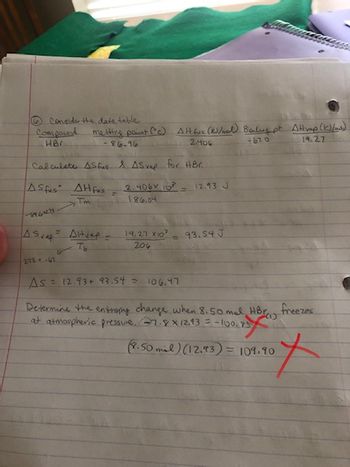 ⑥ Consider the data table
Compound melting point (°c) ΔHfus (kJ/mol) Boiling pt ΔHvap (kJ/mol)
HBr -86.96 2.406 -67.0 19.27
Calculate ΔSfus & ΔSvap for HBr.
ΔSfus = ΔHfus / Tm = 2.406 x 10³ / 186.04 = 12.93 J
ΔSvap = ΔHvap / Tb = 19.27 x 10³ / 206 = 93.54 J
273 + -67
ΔS = 12.93 + 93.54 = 106.47
Determine the entropy change when 8.50 mol HBr(l) freezes
at atmospheric pressure. 7.8 x 12.93 = -100.85
(8.50 mol)(12.93) = 109.90